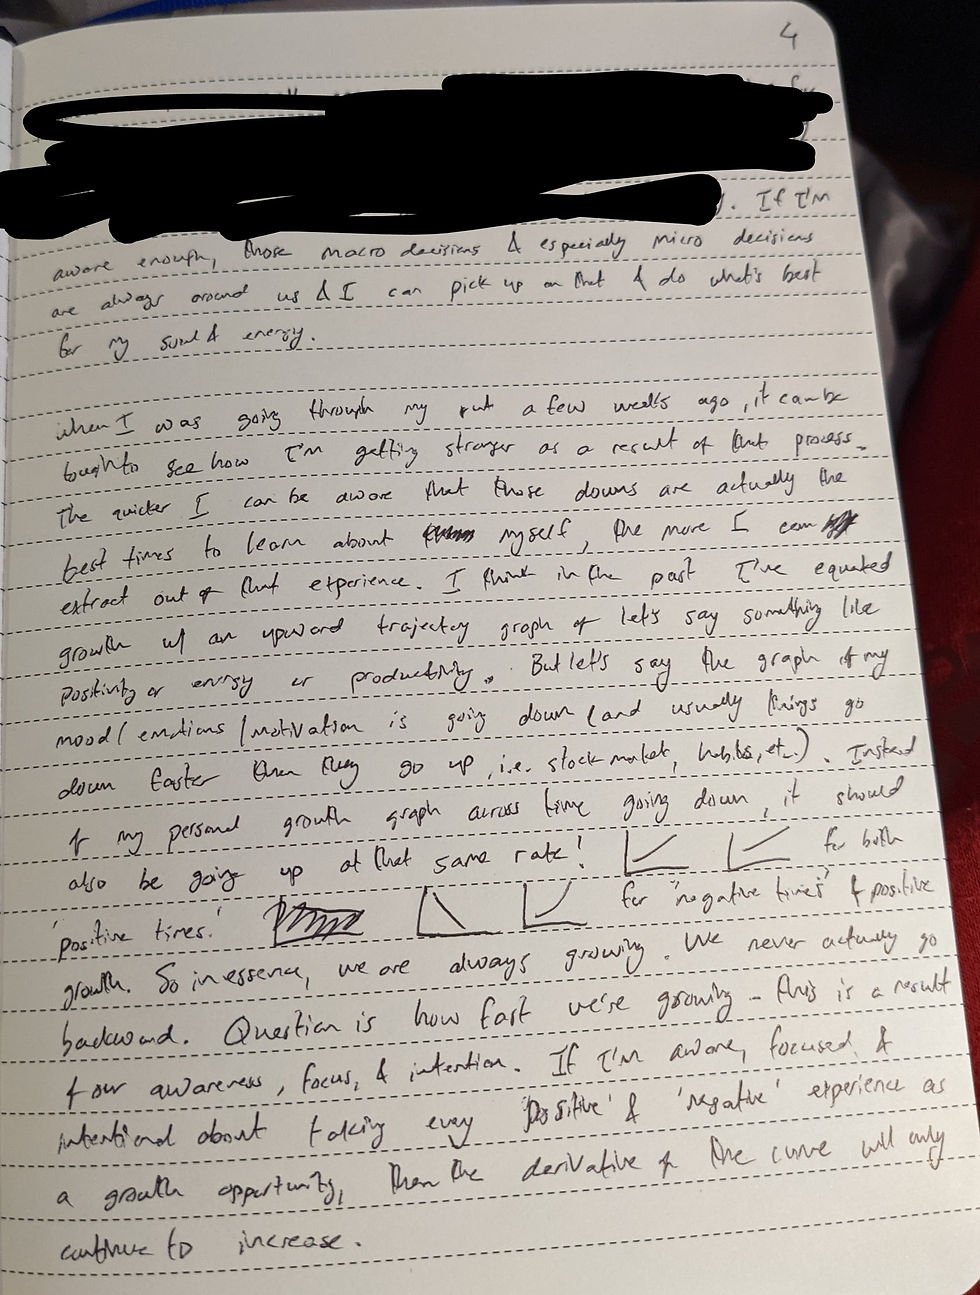 4
. If I'm
aware enough, those macro decisions & especially micro decisions
are always around us & I can pick up on that & do what's best
for my & energy.
when I was going through my rut a few weeks ago, it can be
tough to see how I'm getting stronger as a result of that process.
The quicker I can be aware that those downs are actually the
best times to learn about myself, the more I can
extract out of that experience. I think in the past I've equated
growth w/ an upward trajectory graph of let's say something like
positivity or energy or productivity. But let's say the graph of my
mood/emotions/motivation is going down (and usually things go
down faster than they go up, i.e. stock market, habits, etc.). Instead
of my personal growth graph across time going down, it should
also be going up at that same rate! for both
'positive times.' for "negative times" & positive
growth. So in essence, we are always growing. We never actually go
backward. Question is how fast we're growing - this is a result
of our awareness, focus, & intention. If I'm aware, focused, &
intentional about taking every 'positive' & 'negative' experience as
a growth opportunity, then the derivative of the curve will only
continue to increase.